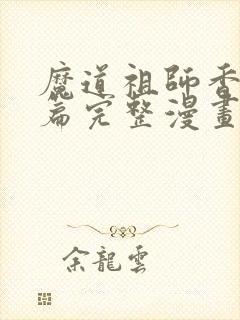 魔道祖師香
篇完整漫畫
余龍雲